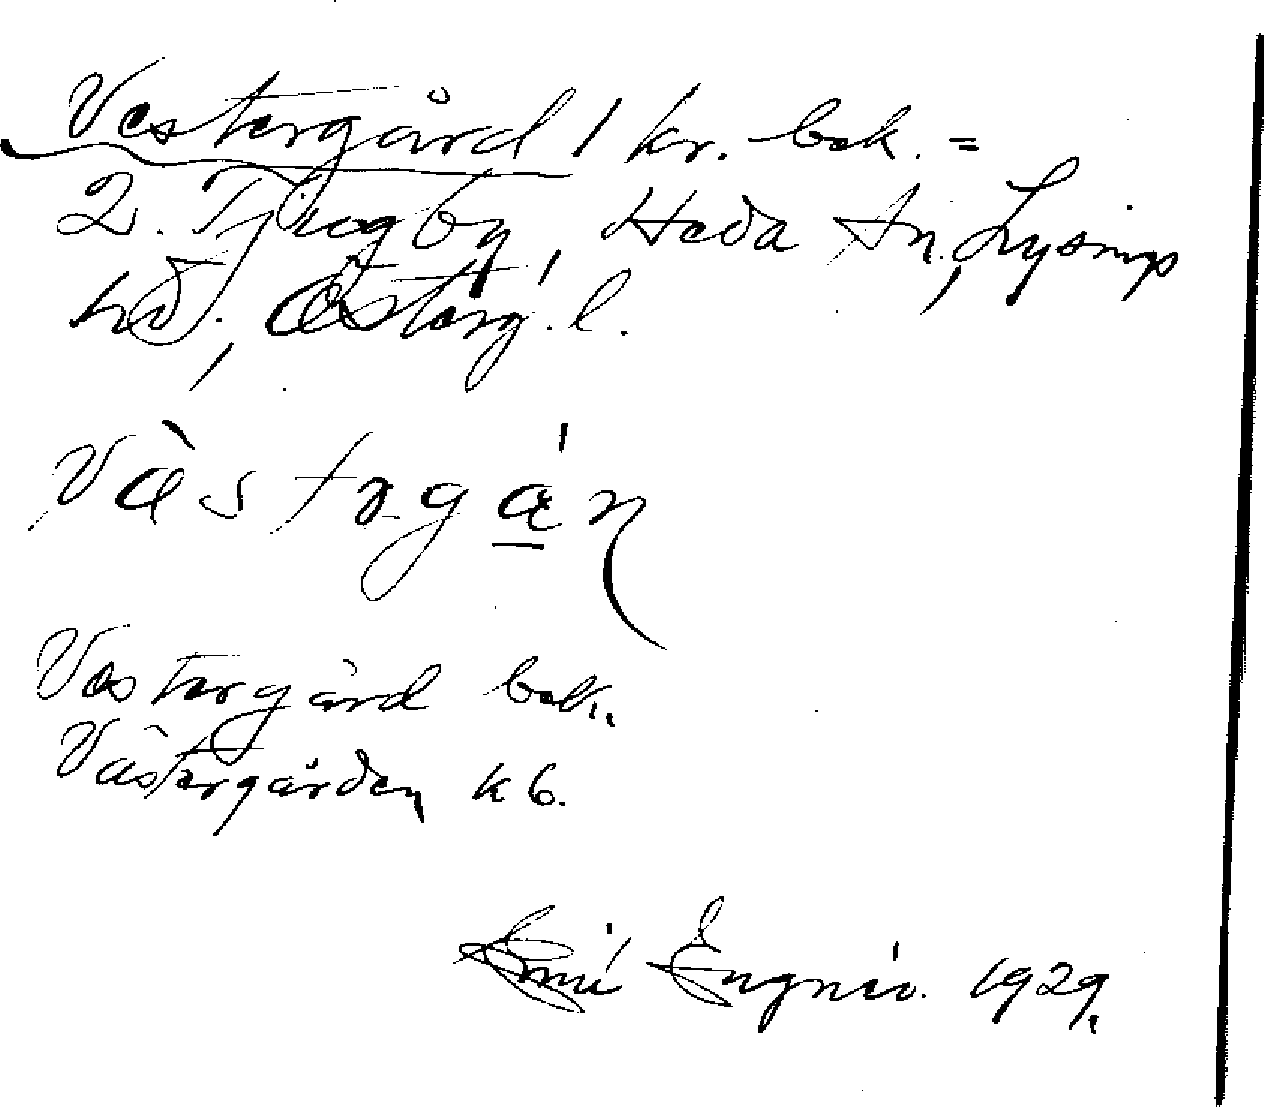 Vestergård 1 kr. bok. =
2. Tjugby, Heda sn, Lysings
hd., Österg. l.
Vàstrgán
Vestergård bok.
Västergården k 6.
Emi Engniö. 1929.